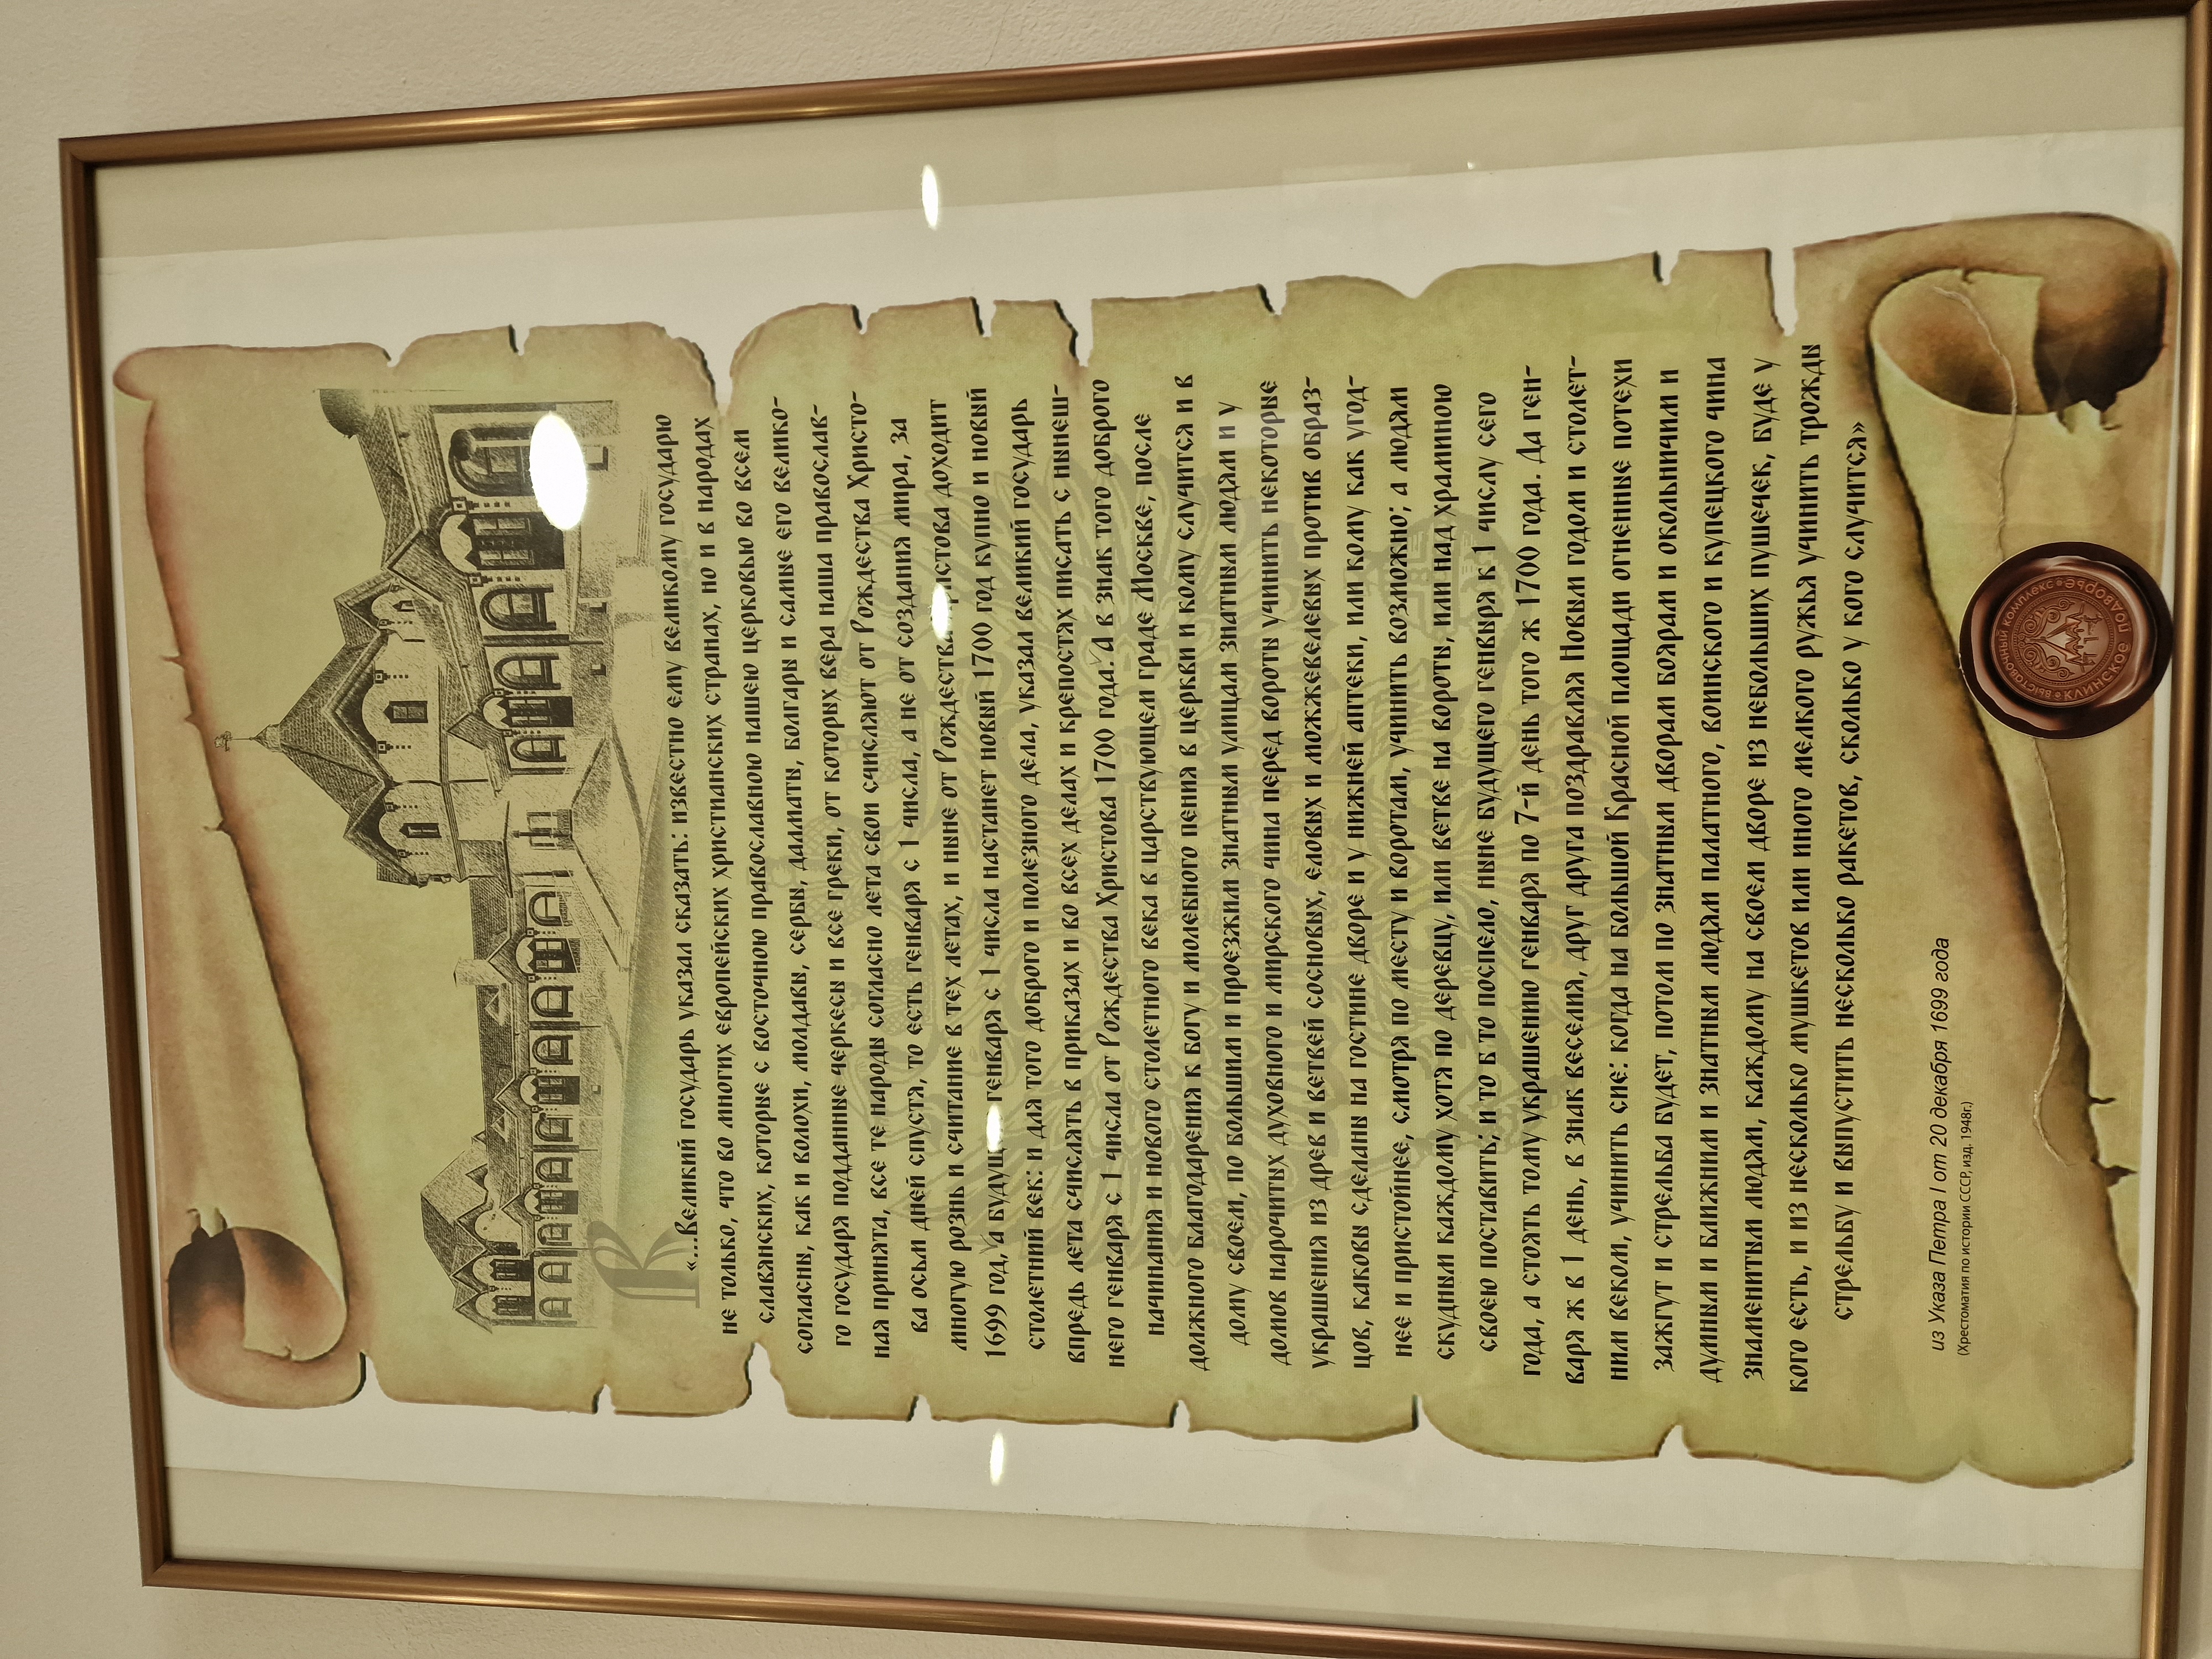 «...Великий государь указал сказать: известно ему великому государю
не только, что во многих европейских христианских странах, но и в народах
славянских, которые с восточною православною нашею церковью во всем
согласны, как и волохи, молдавы, сербы, далматы, болгары и самые его велико-
го государя подданные черкесы и все греки, от которых вера наша православ-
ная принята, все те народы согласно лета свои счисляют от Рождества Христо-
ва осьм дней спустя, то есть генваря с 1 числа, а не от создания мира, за
многую рознь и считание в тех летах, и ныне от Рождества Христова доходит
1699 год, а будущего генваря с 1 числа настанет новый 1700 год купно и новый
столетний век: и для того доброго и полезного дела, указал великий государь
впредь лета счислять в приказах и во всех делах и крепостях писать с нынеш-
него генваря с 1 числа от Рождества Христова 1700 года. А в знак того доброго
начинания и нового столетного века в царствующем граде Москве, после
должного благодарения к богу и молебного пения в церкви и кому случится и в
дому своем, по большим и проезжим знатным улицам знатным людям и у
домов нарочитых духовного и мирского чина перед вороты учинить некоторые
украшения из древ и ветвей сосновых, еловых и можжевелевых против образ-
цов, каковы сделаны на гостине дворе и у нижней аптеки, или кому как угод-
нее и пристойнее, смотря по месту и воротам, учинить возможно; а людям
скудным каждому хотя по деревцу, или ветве на вороты, или над храминою
своею поставить; и то б то поспело, ныне будущего генваря к 1 числу сего
года, а стоять тому украшению генваря по 7-й день того ж 1700 года. Да ген-
варя ж в 1 день, в знак веселия, друг друга поздравляя Новым годом и столет-
ним веком, учинить сие: когда на большой Красной площади огненные потехи
зажгут и стрельба будет, потом по знатным дворам боярам и окольничим и
думным и ближним и знатным людям палатного, воинского и купецкого чина
знаменитым людям, каждому на своем дворе из небольших пушечек, буде у
кого есть, и из несколько мушкетов или иного мелкого ружья учинить трожды
стрельбу и выпустить несколько ракетов, сколько у кого случится»
из Указа Петра I от 20 декабря 1699 года
(Хрестоматия по истории СССР, изд. 1948г.)
выставочный комплекс
Клинское подворье